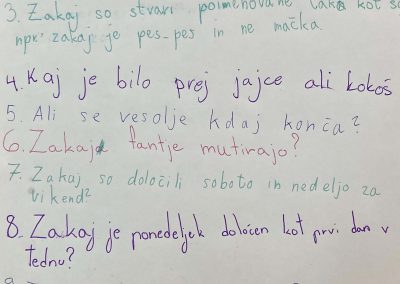 3. Zakaj so stvari poimenovane tako kot so
npr. zakaj je pes-pes in ne mačka
4. Kaj je bilo prej jajce ali kokoš
5. Ali se vesolje kdaj konča?
6. Zakaj fantje mutirajo?
7. Zakaj so določili soboto in nedeljo za
vikend?
8. Zakaj je ponedeljek določen kot prvi dan v
tednu?